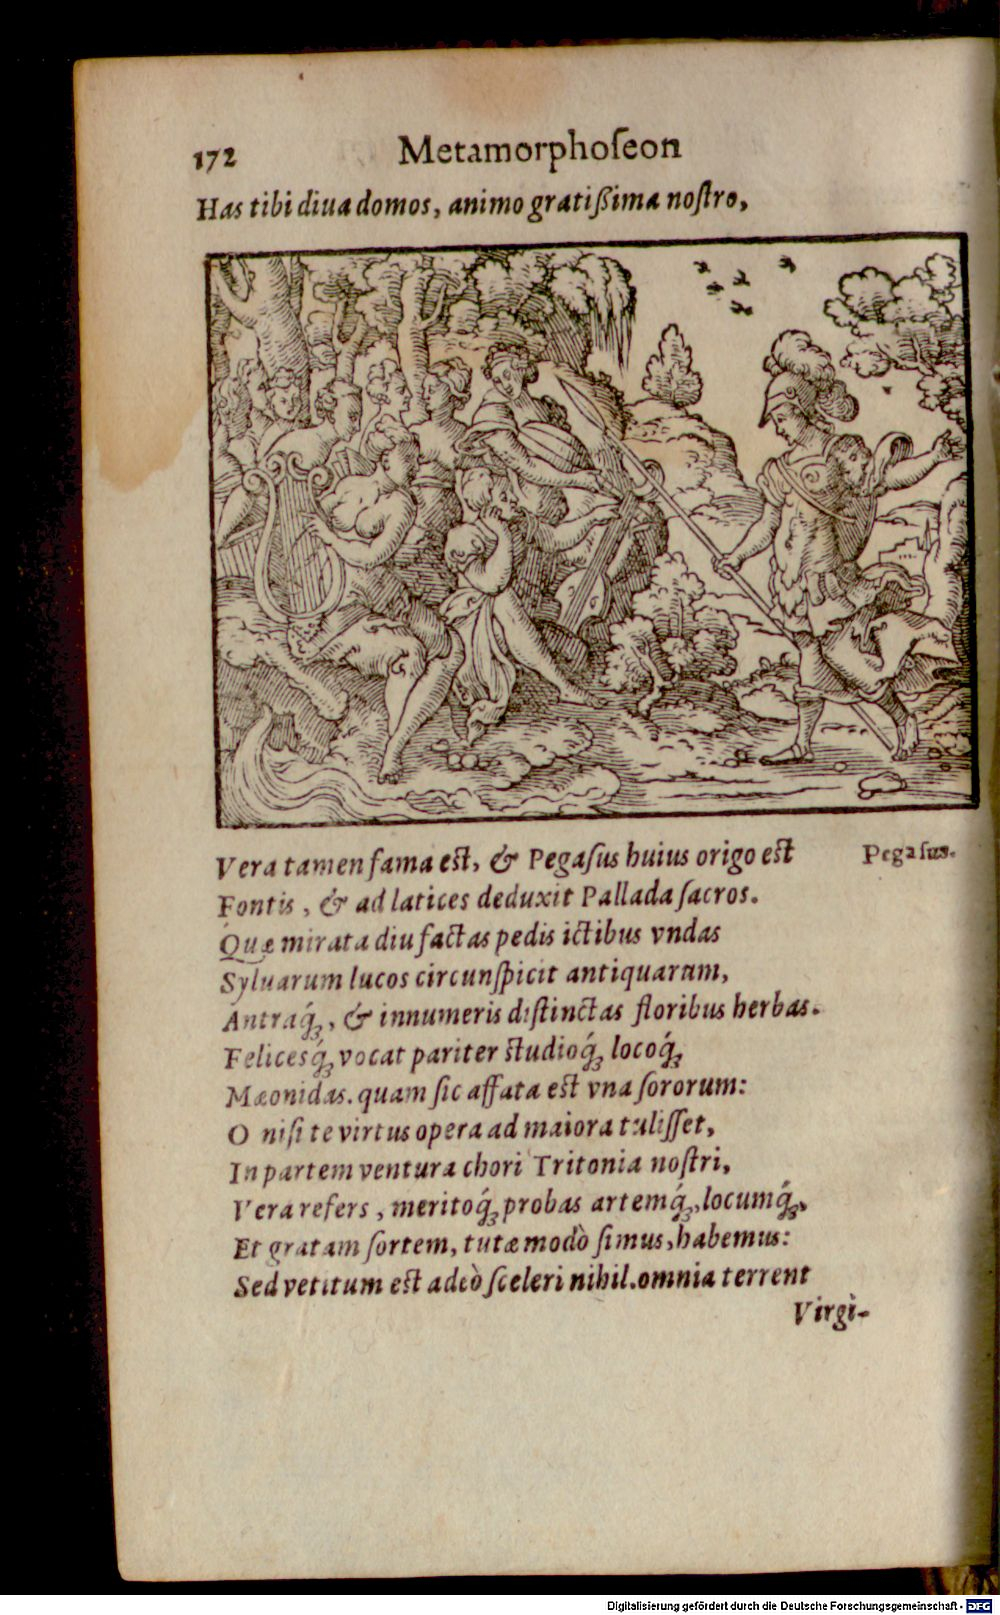 172 Metamorphoſeon
Has tibi diua domos, animo gratißima noſtro,
Vera tamen fama est, & Pegaſus huius origo est
Pegaſus.
Fontis, & ad latices deduxit Pallada ſacros.
Quæ mirata diu factas pedis ictibus vndas
Syluarum lucos circunſpicit antiquarum,
Antraq́;, & innumeris diſtinctas floribus herbas.
Felicesq́; vocat pariter studioq́; locoq́;
Mæonidas. quam ſic affata est vna ſororum:
O niſi te virtus opera ad maiora tuliſſet,
In partem ventura chori Tritonia noſtri,
Vera refers, meritoq́; probas artemq́;, locumq́;,
Et gratam ſortem, tutæ modò ſimus, habemus:
Sed vetitum est adeò ſceleri nihil. omnia terrent
Virgì-
Digitalisierung gefördert durch die Deutsche Forschungsgemeinschaft - DFG